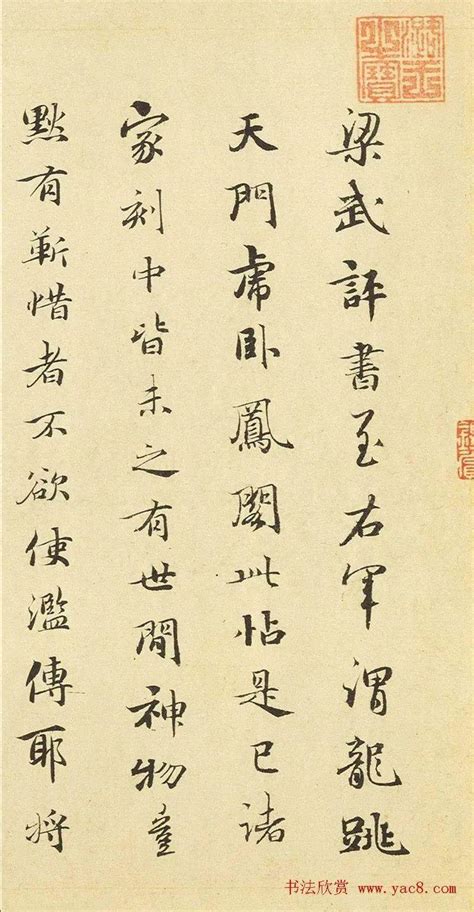 梁武評書至右軍謂龍跳
天門虎卧鳳閣此帖是已諸
家刻中皆未之有世間神物豈
黙有靳惜者不欲使濫傳耶将
书法欣赏 www.yac8.com